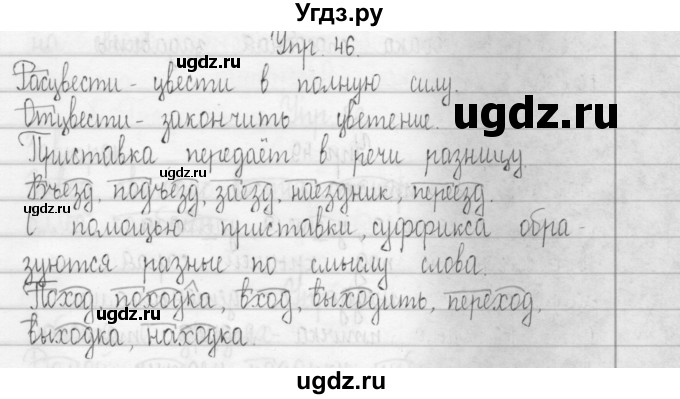 Угдз.ру
Упр. 46.
Расцвести - цвести в полную силу.
Отцвести - закончить цветение.
ugdz.ru
ugdz.ru
Приставка передаёт в речи разницу.
Въезд, подъезд, заезд, наездник, переезд.
ugdz.ru
С помощью приставки, суффикса обра-
зуются разные по смыслу слова.
Поход, походка, вход, выходить, переход,
ugdz.ru
выходка, находка.
ugdz.ru